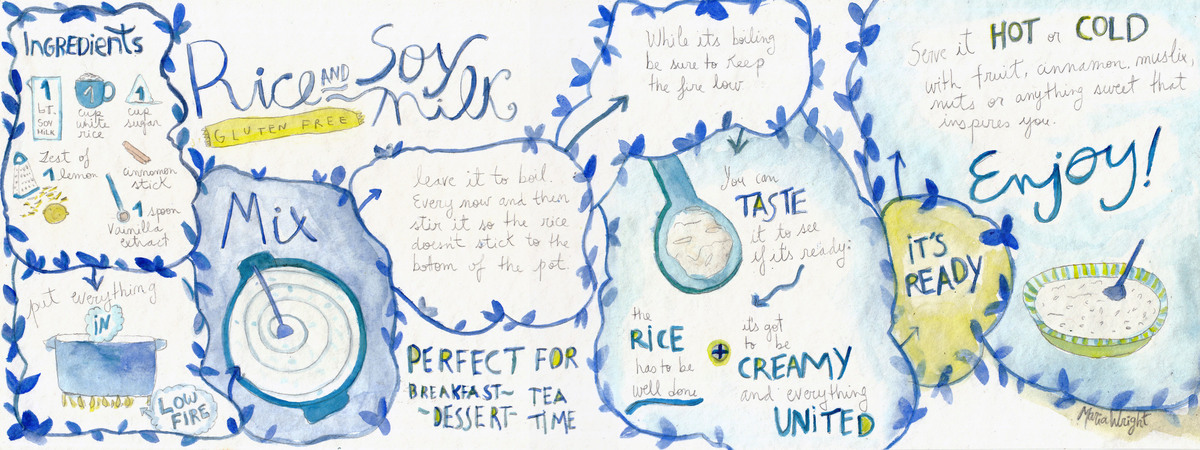 INGREDIENTS
1
LT.
SOY
MILK
1
cup
white
rice
1
cup
sugar
Zest of
1 lemon
cinnamon
stick
1 spoon
Vainilla
extract
put everything
IN
LOW
FIRE
Rice AND Soy
Milk
GLUTEN FREE
Mix
leave it to boil.
Every now and then
stir it so the rice
doesn't stick to the
bottom of the pot.
PERFECT FOR
BREAKFAST~
~DESSERT-
TEA
TIME
While its boiling
be sure to keep
the fire low
You can
TASTE
it to see
if it's ready:
the
RICE
has to be
well done
+
it's got
to be
CREAMY
and everything
UNITED
IT'S
READY
Serve it HOT or COLD
with fruit, cinnamon, muslix,
nuts or anything sweet that
inspires you.
Enjoy!
Maria Wright